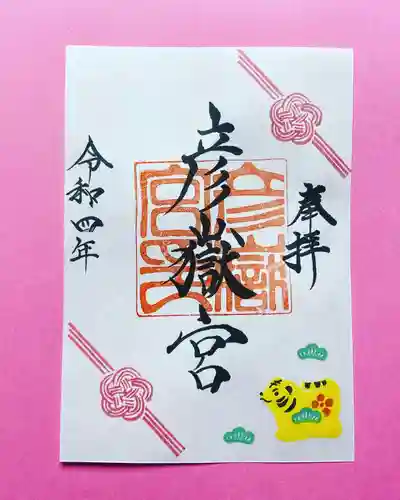 奉拝
彦嶽宮
彦嶽宮之印
令和四年